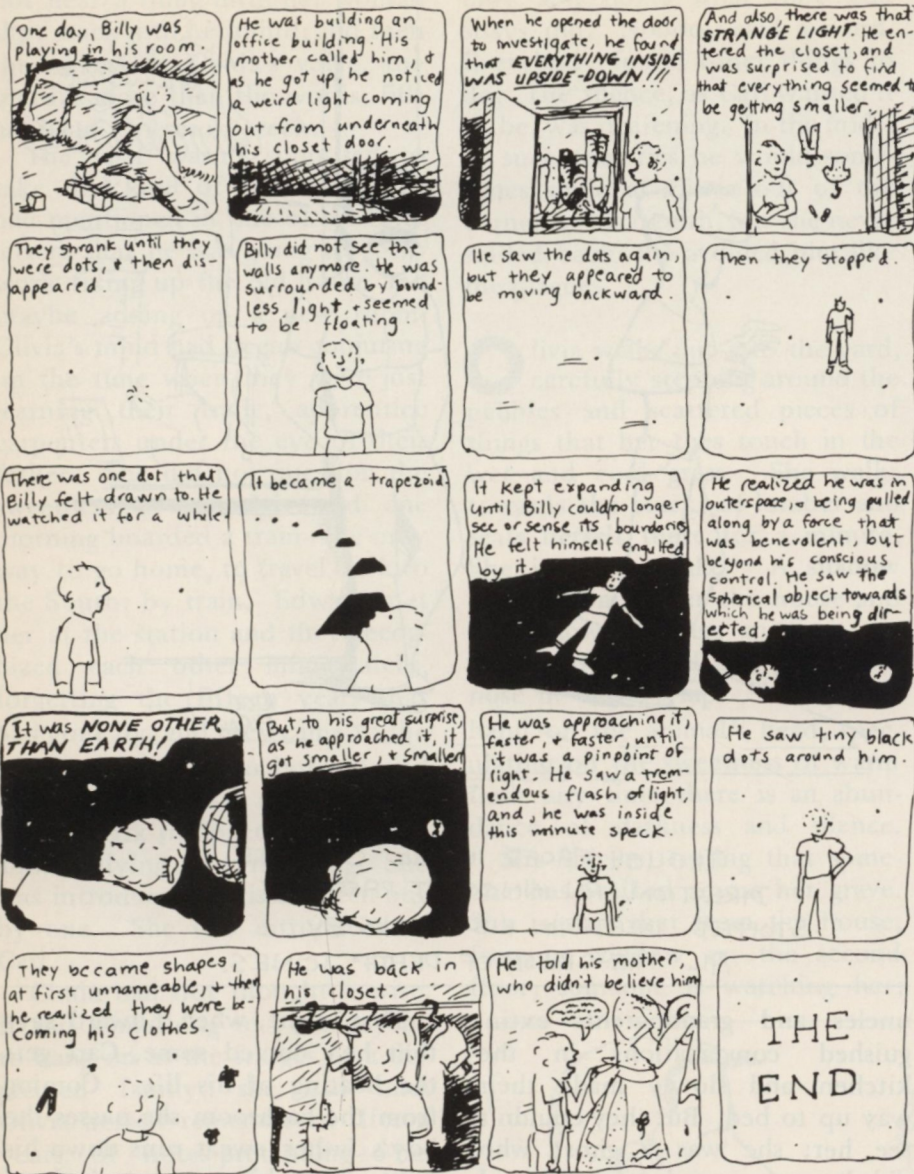 One day, Billy was
playing in his room.
He was building an
office building. His
mother called him, &
as he got up, he noticed
a weird light coming
out from underneath
his closet door.
When he opened the door
to investigate, he found
that EVERYTHING INSIDE
WAS UPSIDE-DOWN!!!
And also, there was that
STRANGE LIGHT. He en-
tered the closet, and
was surprised to find
that everything seemed to
be getting smaller.
They shrank until they
were dots, & then dis-
appeared.
Billy did not see the
walls anymore. He was
surrounded by bound-
less light, seemed
to be floating
He saw the dots again,
but they appeared to
be moving backward.
Then they stopped.
There was one dot that
Billy felt drawn to. He
watched it for a while.
It became a trapezoid.
It kept expanding
until Billy could no longer
see or sense its boundaries
He felt himself engulfed
by it.
He realized he was in
outerspace, & being pulled
along by a force that
was benevolent, but
beyond his conscious
control. He saw the
spherical object towards
which he was being dir-
ected.
It was NONE OTHER
THAN EARTH!
But, to his great surprise,
as he approached it, it
got smaller, & smaller!
He was approaching it,
faster, & faster, until
it was a pinpoint of
light. He saw a trem-
endous flash of light,
and, he was inside
this minute speck.
He saw tiny black
dots around him.
They became shapes,
at first unnameable, & then
he realized they were be-
coming his clothes.
He was back in
his closet.
He told his mother,
who didn't believe him
THE
END